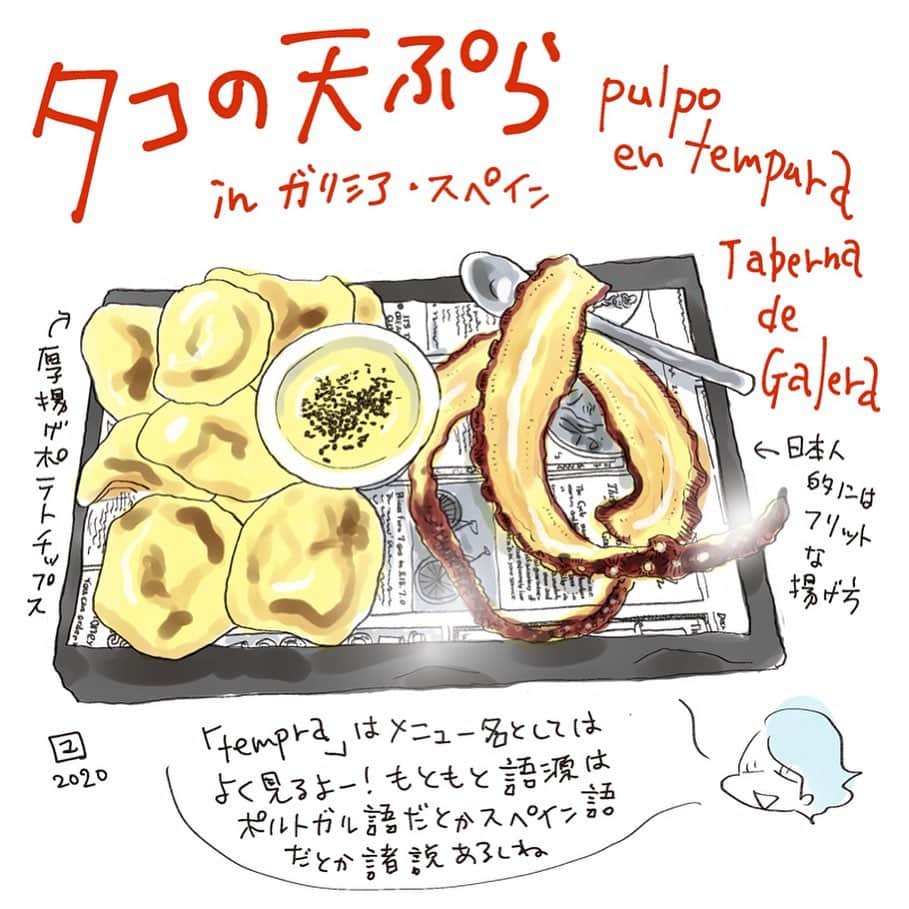 タコの天ぷら
in ガリシア・スペイン
pulpo
en tempura
Taberna
de
Galera
←厚揚げポテトチップス
←日本人
的には
フリット
な
揚げ方
「tempra」はメニュー名としては
よく見るよー!もともと語源は
ポルトガル語だとかスペイン語
だとか諸説あるしね
2020